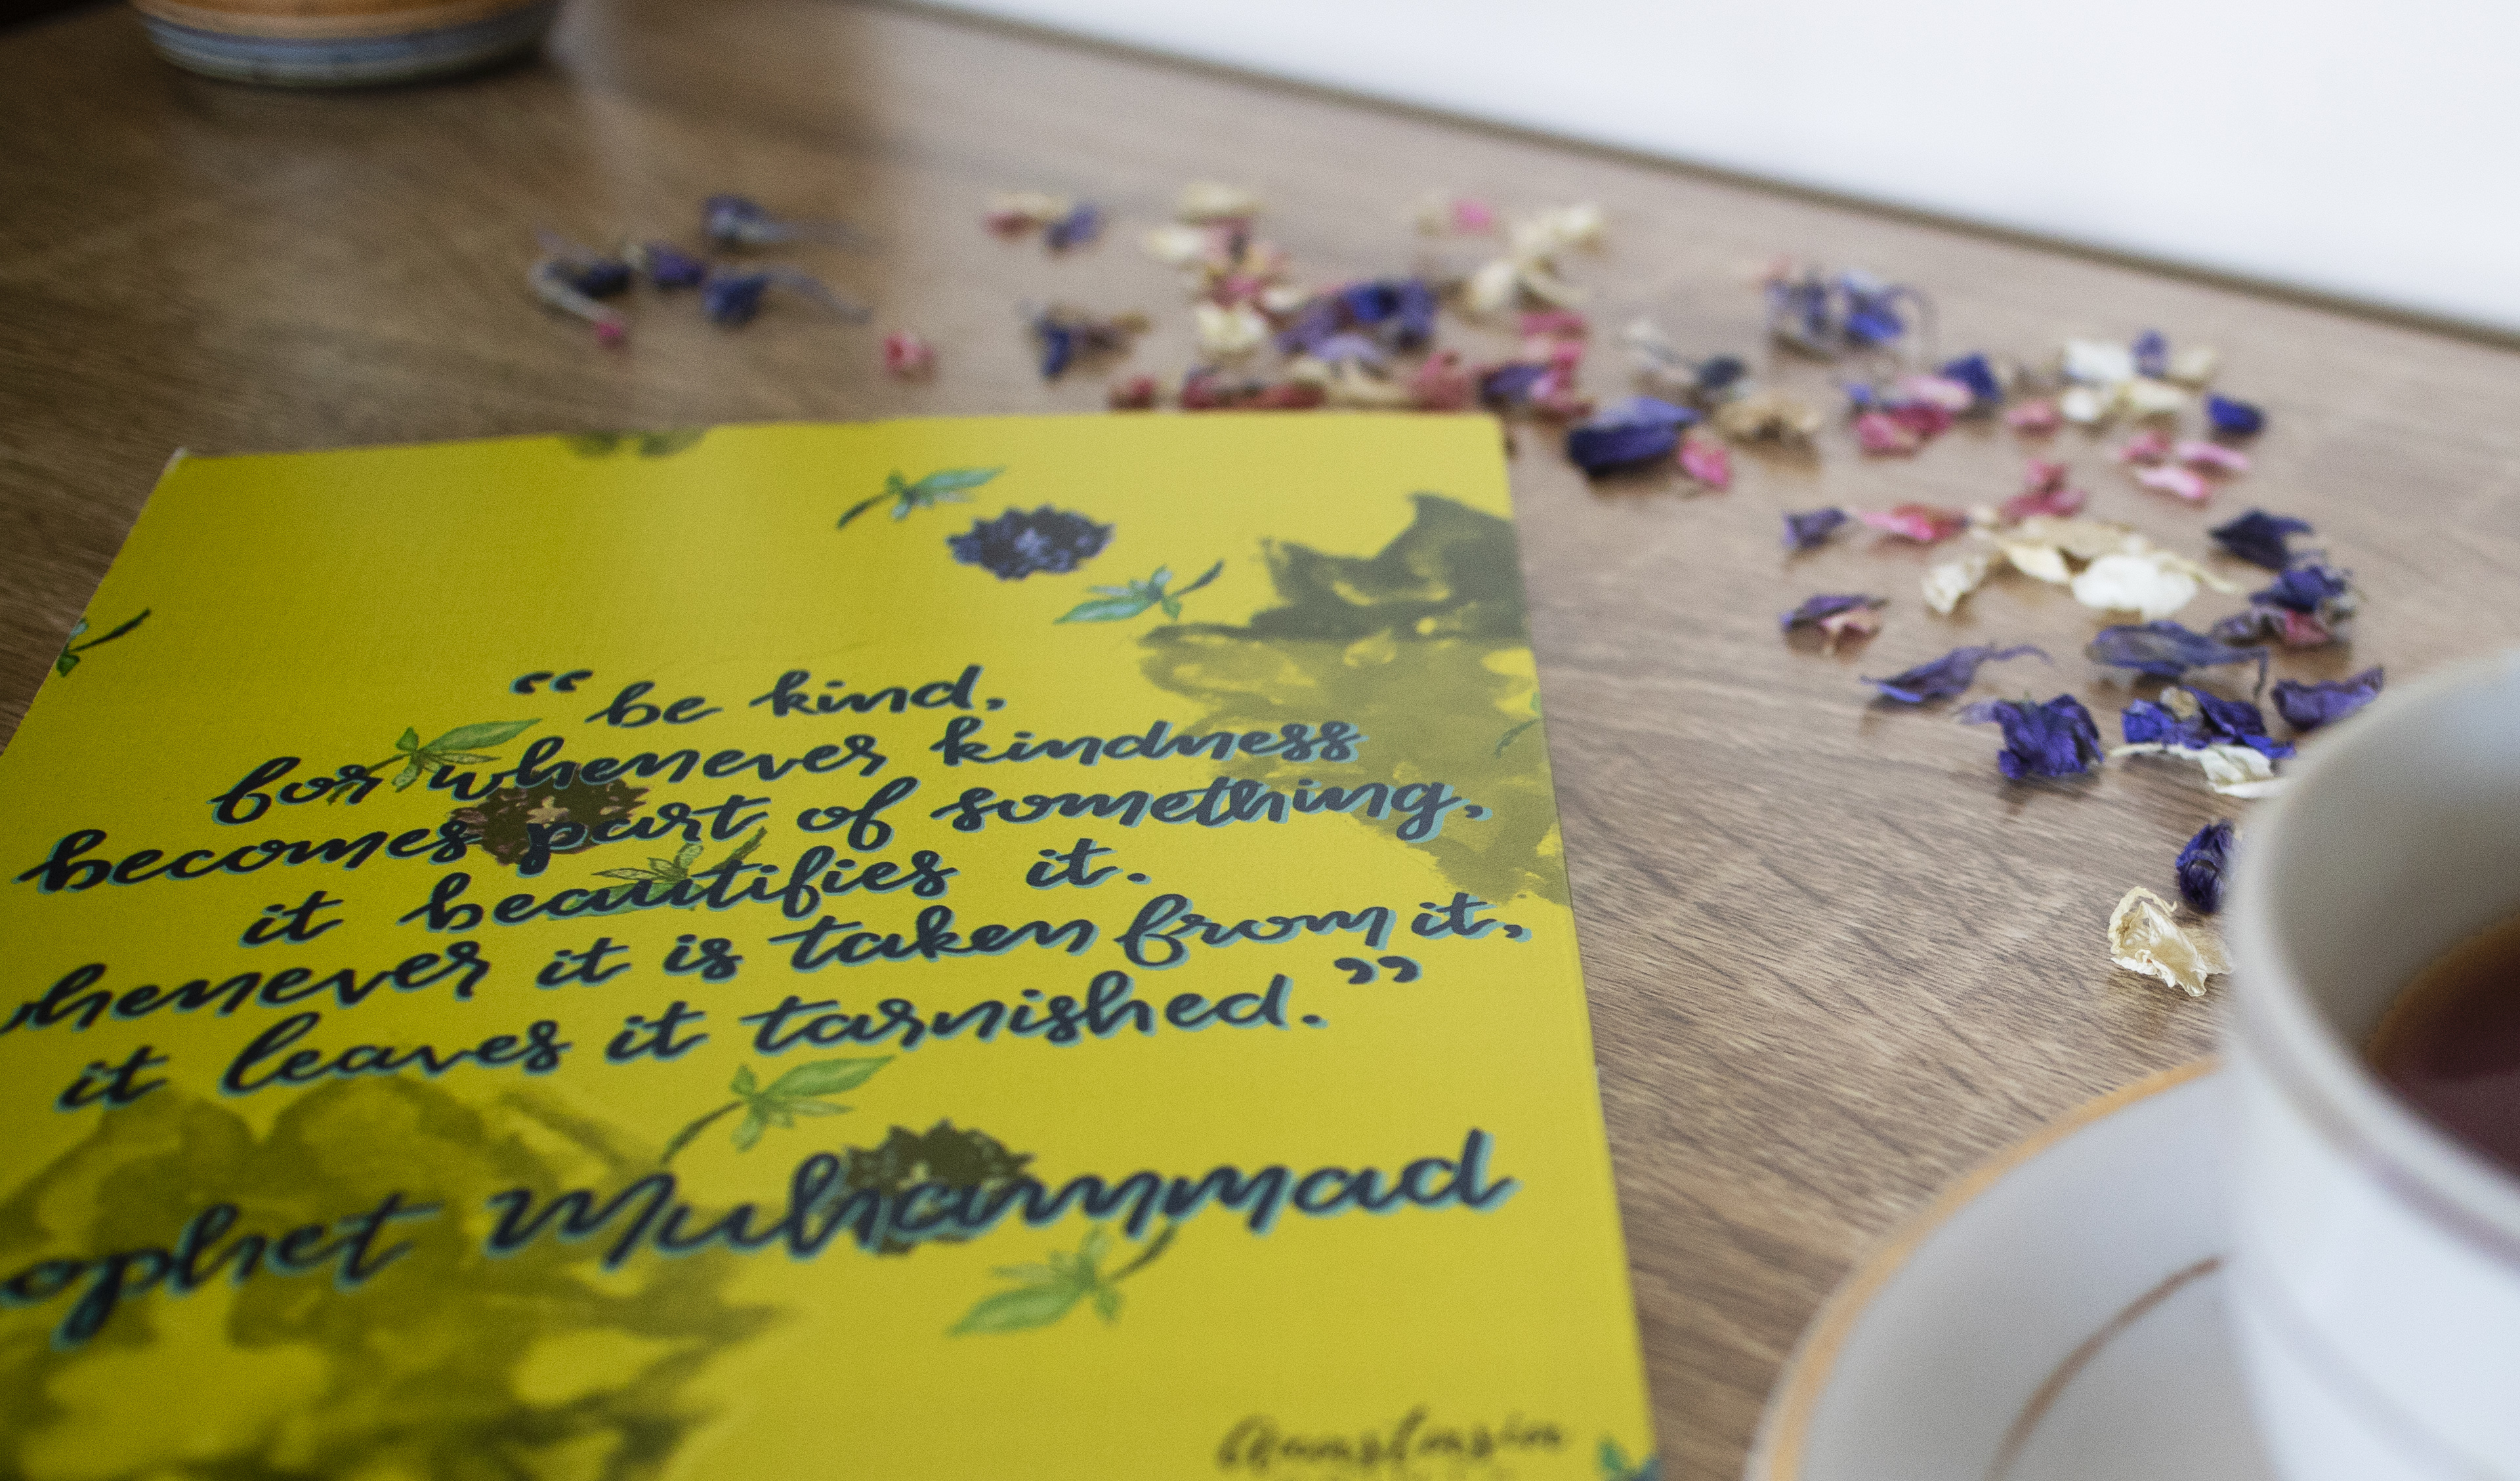 “be kind,
for whenever kindness
becomes part of something,
it beautifies it.
whenever it is taken from it,
it leaves it tarnished.”
ophet Muhammad